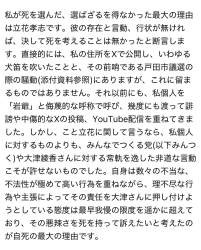 私が死を選んだ、選ばざるを得なかった最大の理由
は立花孝志です。彼の存在と言動、行状が無けれ
ば、決して死を考えることは無かったと断言しま
す。直接的には、私の住所をXで公開し、いわゆる
犬笛を吹いたことと、その前哨である戸田市議選
の際の騒動(添付資料参照)にありますが、これに留ま
るものではありません。それ以前にも、私個人を
「岩爺」と侮蔑的な呼称で呼び、幾度にも渡って誹
謗や中傷的なXの投稿、YouTube配信を重ねてきま
した。しかし、こと立花に関して言うなら、私個人
に対するものよりも、みんなでつくる党(以下みんつ
く)や大津綾香さんに対する常軌を逸した非道な言動
こそが許せないものでした。自身は数々の不当な、
不法性が極めて高い行為を重ねながら、理不尽な行
為や主張によってその責任を大津さんに押し付けよ
うとしている態度は最早我慢の限度を遥かに超えて
おり、その悪辣さを死を持って訴えたいと考えたの
が自死の最大の理由です。